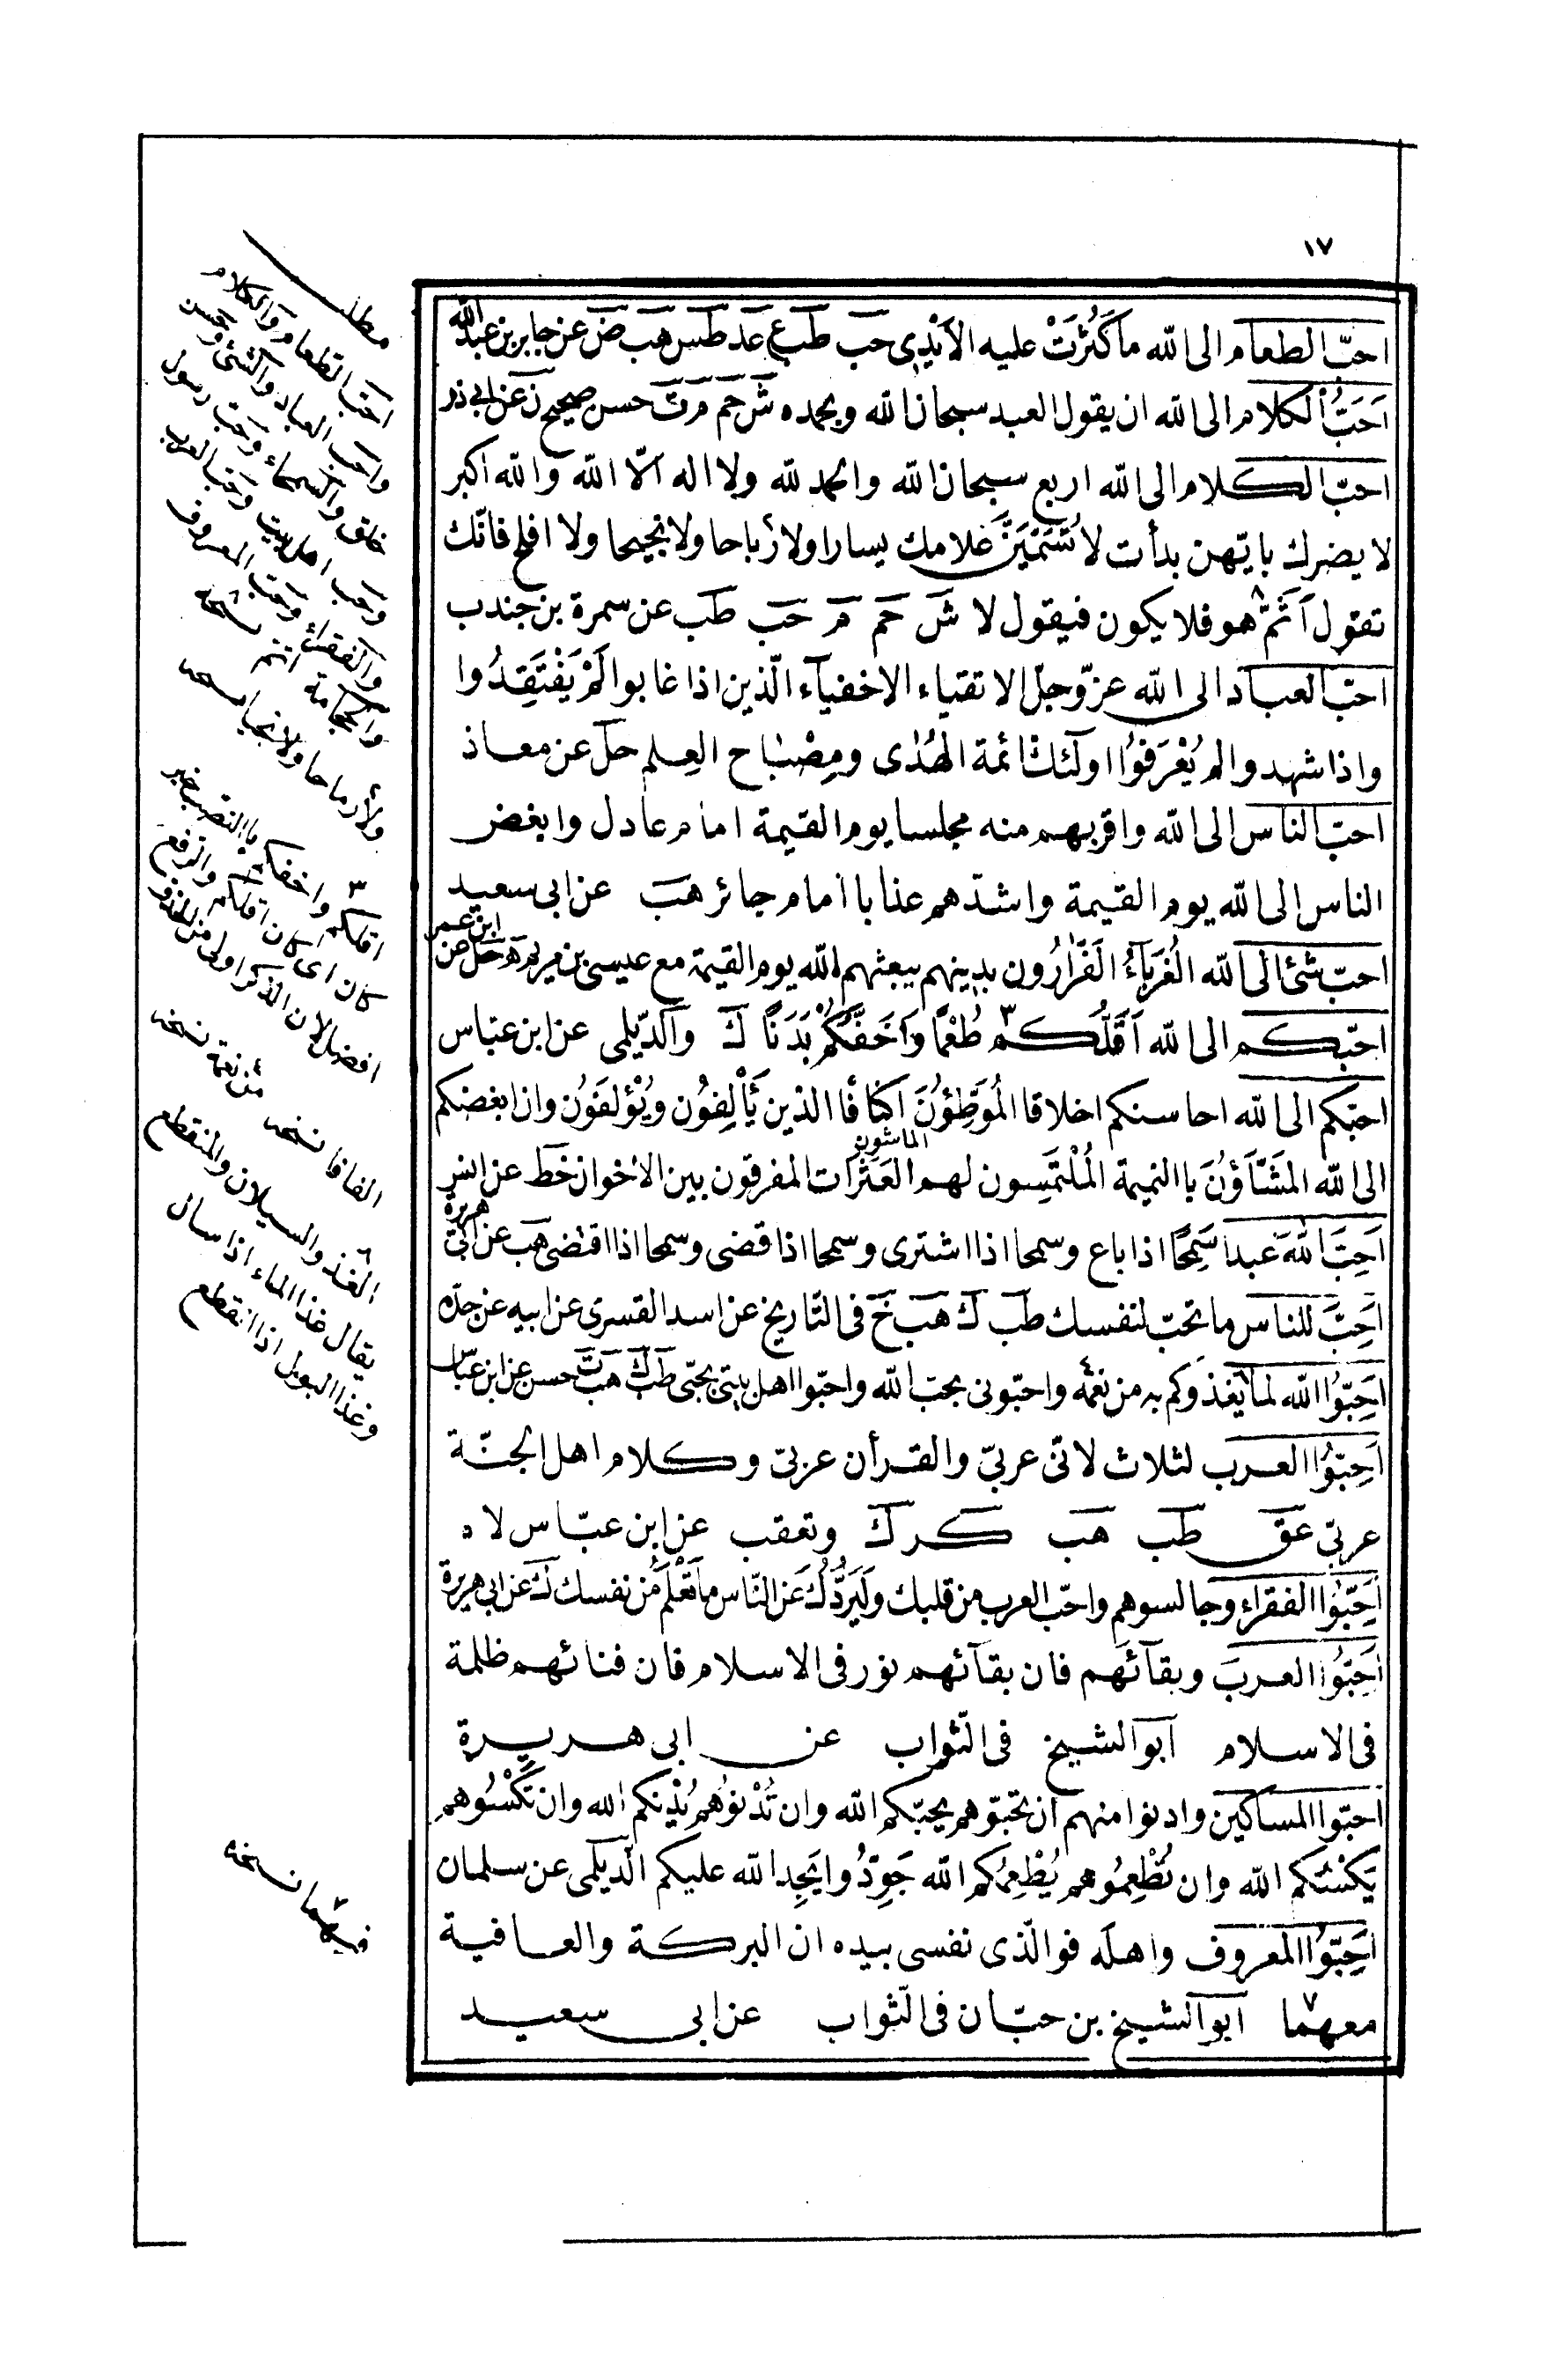 ١٧
احبّ الطعام الى الله ما كَثُرَتْ عليه الاَيْدِى حب طب ع عد طس هب ض عن جابر بن عبد الله
اَحَبُّ الكلام الى الله ان يقول العبد سبحان الله وبحمده ش حم م ت حسن صحيح ن عن ابى ذر
احبّ الكلام الى الله اربع سبحان الله والحمد لله ولا اله الّا الله والله اكبر
لا يضرك بايّهن بدأت لا تُسَمِّيَنَّ غلامك يسارا ولا رباحا ولا نجيحا ولا افلح فانّك
تقول اَثَمَّ هو فلا يكون فيقول لا ش حم م حب طب عن سمرة بن جندب
احبّ العباد الى الله عزّ وجلّ الاتقياء الاخفيآء الّذين اذا غابوا لَمْ يُفْتَقَدُوا
واذا شهدوا لم يُعْرَفُوا اولٰئك ائمة الهُدٰى ومِصْبَاح العِلم حل عن معاذ
احبّ الناس الى الله واقربهم منه مجلسا يوم القيمة امام عادل وابغض
الناس الى الله يوم القيمة واشدّهم عذابا امام جائر هب عن ابى سعيد
احبّ شئ الى الله الغُرَبَآءُ الفَرَّارُون بدينهم يبعثهم الله يوم القيمة مع عيسى بن مريم حل عن ابن عمر
احبّكم الى الله اَقَلُّكم ٣ طُعْمًا وَاَخَفُّكُمْ بَدَنًا ك والدّيلمى عن ابن عبّاس
احبّكم الى الله احاسنكم اخلاقا المُوَطَّؤُنَ اكنافًا الذين يَأْلِفُون ويُؤْلَفُون وان ابغضكم
الى الله المَشَّآؤُنَ باالنميمة المُلْتَمِسون لهم العَثَرَات المفرقون بين الاخوان خط عن انس
الماشون
اَحَبَّ اللهُ عبدا سَمِحًا اذا باع وسمحا اذا اشترى وسمحا اذا قضى وسمحا اذا اقتضى هب عن ابى هريرة
اَحِبَّ للناس ما تحبّ لنفسك طب ك هب خ فى التّاريخ عن اسد القسرى عن ابيه عن جدّه
اَحِبُّوا الله لما يغذوكم به من نعمة واحبّونى بحبّ الله واحبّوا اهل بيتى بحبّى طب ك هب ت حسن عن ابن عبّاس
اَحِبُّوا العرب لثلاث لانّى عربىّ والقرأن عربىّ وكلام اهل الجنّة
عربىّ عق طب هب كر ك وتعقب عن ابن عبّاس لا ه
اَحِبُّوا الفقراء وجالسوهم واحبّ العرب من قلبك ولَيَرُدُّكَ عَنِ النّاس ما تَعْلَمُ من نفسك ك عن ابى هريرة
اَحِبُّوا العربَ وبقآئَهم فان بقآئهم نور فى الاسلام فان فنائهم ظلمة
فى الاسلام ابو الشيخ فى الثّواب عن ابى هريرة
احبّوا المساكين وادنوا منهم ان تحبّوهم يحبّكم الله وان تُدْنُوهُم يُدْنِكم الله وان تَكْسُوهم
يَكْسُكم الله وان تُطْعِمُوهم يُطْعِمْكم الله جَوِّدُوا يَجُدِ الله عليكم الدّيلمى عن سلمان
اَحِبُّوا المعروف واهله فوالّذى نفسى بيده ان البركة والعافية
معهما ٧ ابو الشيخ بن حبّان فى الثّواب عن ابى سعيد
مطلب
احبّ الطعام والكلام
واحب العباد والشئ وحسن
خلق والسمحاء وحبّ رسول
وحب اهل بيت وحبّ العرب
والفقراء وحبّ المعروف
ولا رباحا ولا نجيا نسخه
٣ اقلكم واخفكم باالنصب خبر
كان اى كان اقلكم والرفع
افضل لان الذكر اولى من الحذف
من نعمة نسخه
الفافا نسخه
٦ الغذ والسيلان والمنقطع
يقال غذا الماء اذا سال
وغذا البول اذا انقطع
٧ فيهما نسخه